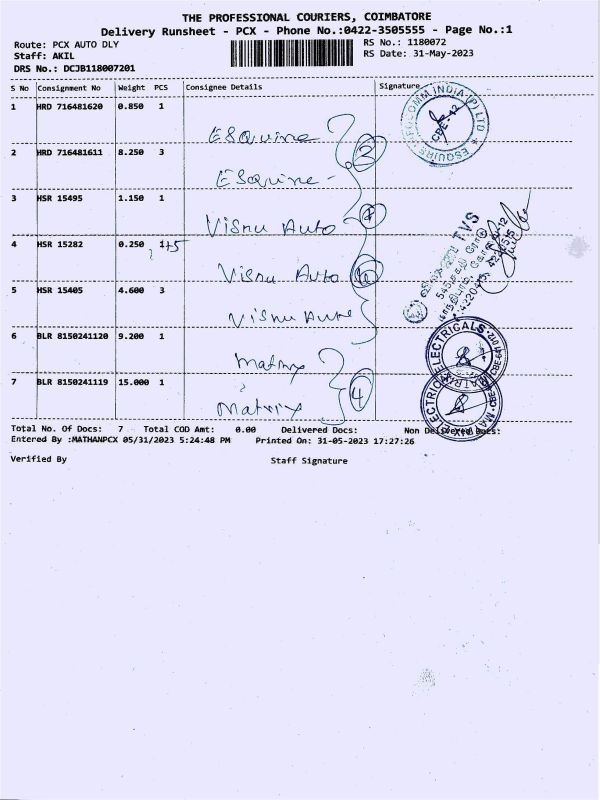 THE PROFESSIONAL COURIERS, COIMBATORE
Delivery Runsheet - PCX - Phone No.:0422-3505555 - Page No.:1
Route: PCX AUTO DLY
RS No.: 1180072
Staff: AKIL
RS Date: 31-May-2023
DRS No.: DCJB118007201
S No Consignment No Weight PCS Consignee Details Signature
1 HRD 716481620 0.850 1
ESquire
2 HRD 716481611 8.250 3
ESquire
3 HSR 15495 1.150 1
Visnu Auto
4 HSR 15282 0.250 1
Visnu Auto
5 HSR 15405 4.600 3
Visnu Auto
6 BLR 8150241120 9.200 1
Matrix
7 BLR 8150241119 15.000 1
Matrix
4
ESQUIRE
INDIA (P) LTD
CBE-12
TVS
MATRIX ELECTRICALS
Total No. Of Docs: 7 Total COD Amt: 0.00 Delivered Docs: Non Delivered Docs:
Entered By :MATHANPCX 05/31/2023 5:24:48 PM Printed On: 31-05-2023 17:27:26
Verified By Staff Signature